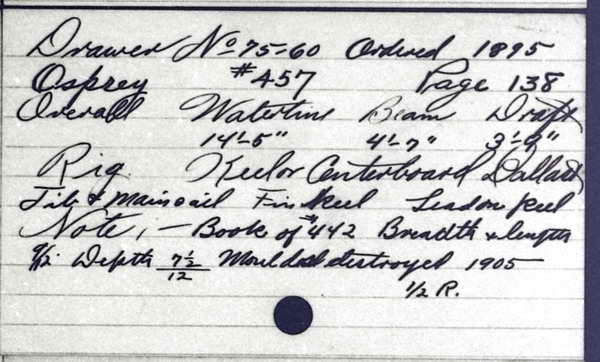 Drawer No 75-60 Ordered 1895
Osprey #457 Page 138
Overall Waterline Beam Draft
14'-5" 4'-7" 3'-9"
Rig Keel or Centerboard Ballast
Jib & Mainsail Fin keel Lead on keel
Note, — Book of #442 Breadth & length
9/12 Depth 7½/12 Moulds destroyed 1905
1/2 R.